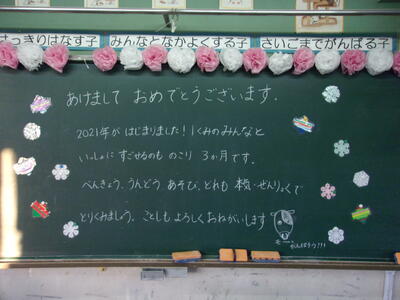 はっきりはなす子 みんなとなかよくする子 さいごまでがんばる子
あけまして おめでとうございます.
2021年が はじまりました！1くみのみんなと
いっしょに すごせるのも のこり 3か月です.
べんきょう、うんどう あそび、どれも 本気・ぜんりょくで
とりくみましょう。ことしも よろしくおねがいします
モー
がんばろう!!!